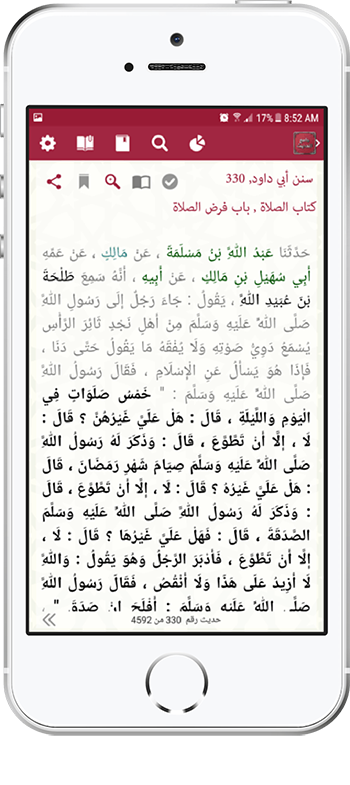 17% 8:52 AM
سنن أبي داود, 330
كتاب الصلاة , باب فرض الصلاة
حَدَّثَنَا عَبْدُ اللَّهِ بْنُ مَسْلَمَةَ ، عَنْ مَالِكٍ ، عَنْ عَمِّهِ
أَبِي سُهَيْلِ بْنِ مَالِكٍ ، عَنْ أَبِيهِ ، أَنَّهُ سَمِعَ طَلْحَةَ
بْنَ عُبَيْدِ اللَّهِ ، يَقُولُ : جَاءَ رَجُلٌ إِلَى رَسُولِ اللَّهِ
صَلَّى اللَّهُ عَلَيْهِ وَسَلَّمَ مِنْ أَهْلِ نَجْدٍ ثَائِرَ الرَّأْسِ
يُسْمَعُ دَوِيُّ صَوْتِهِ وَلَا يُفْقَهُ مَا يَقُولُ حَتَّى دَنَا ،
فَإِذَا هُوَ يَسْأَلُ عَنِ الْإِسْلَامِ ، فَقَالَ رَسُولُ اللَّهِ
صَلَّى اللَّهُ عَلَيْهِ وَسَلَّمَ : " خَمْسُ صَلَوَاتٍ فِي
الْيَوْمِ وَاللَّيْلَةِ ، قَالَ : هَلْ عَلَيَّ غَيْرُهُنَّ ؟ قَالَ :
لَا ، إِلَّا أَنْ تَطَّوَّعَ ، قَالَ : وَذَكَرَ لَهُ رَسُولُ اللَّهِ
صَلَّى اللَّهُ عَلَيْهِ وَسَلَّمَ صِيَامَ شَهْرِ رَمَضَانَ ، قَالَ
: هَلْ عَلَيَّ غَيْرُهُ ؟ قَالَ : لَا ، إِلَّا أَنْ تَطَّوَّعَ ، قَالَ
: وَذَكَرَ لَهُ رَسُولُ اللَّهِ صَلَّى اللَّهُ عَلَيْهِ وَسَلَّمَ
الصَّدَقَةَ ، قَالَ : فَهَلْ عَلَيَّ غَيْرُهَا ؟ قَالَ : لَا ،
إِلَّا أَنْ تَطَّوَّعَ ، فَأَدْبَرَ الرَّجُلُ وَهُوَ يَقُولُ : وَاللَّهِ
لَا أَزِيدُ عَلَى هَذَا وَلَا أَنْقُصُ ، فَقَالَ رَسُولُ اللَّهِ
صَلَّى اللَّهُ عَلَيْهِ وَسَلَّمَ : أَفْلَحَ إِنْ صَدَقَ " ،
حديث رقم 330 من 4592